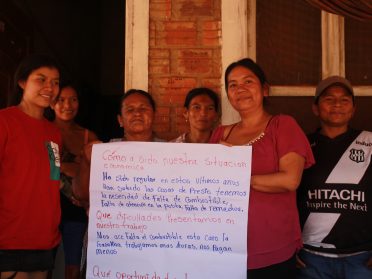 Cómo a Sido nuestra Situación
economica
Ha Sido regular en estos Ultimos años
han subido las Cosas de Presio tenemos
la nesesidad de Falta de Combustible,
Falta de atención en la postas, Falta de remedios.
Que dificultades Presentamos en
nuestro trabajo
Nos ase falta el combustible esta cara la
Gasolina, trabajamos mas horas, nos Pagan
menos
Que oportunidad
HITACHI
Inspire the Next